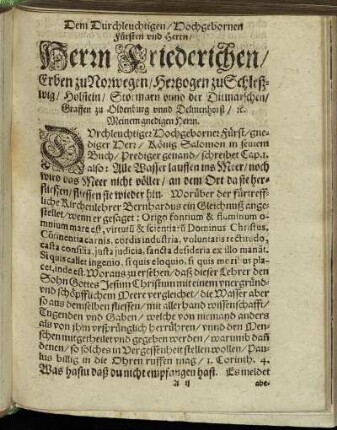 Dem Durchleuchtigen/Hochgebornen
Fürsten vnd Herrn/
Herrn Friederichen/
Erben zu Norwegen/Hertzogen zu Schleß-
wig/Holstein/Stormarn vnnd der Ditmarschen/
Graffen zu Oldenburg vnnd Delmenhorst/ ꝛc.
Meinem gnedigen Herrn.
DVrchleuchtiger Hochgeborner Fürst/gne-
diger Herr/ König Salomon in seinem
Buch/Prediger genand/schreibet Cap.1.
also: Alle Wasser lauffen ins Meer/noch
wird das Meer nicht völler/an dem Ort da sie her-
fliessen/fliessen sie wieder hin. Worüber der fürtreff-
liche Kirchenlehrer Bernhardus ein Gleichnuß ange-
stellet/wenn er gesaget: Origo fontium & fluminum o-
mnium mare est, virtutū & scientiarū Dominus Christus,
Cōtinentia carnis, cordis industria, voluntatis rectitudo,
casta consilia, justa judicia, sancta desideria ex illo manāt.
Si quis callet ingenio, si quis eloquio, si quis moribus pla-
cet, inde est. Woraus zu ersehen/daß dieser Lehrer den
Sohn Gottes Jesum Christum mit einem vnergründ-
vnd schöpfflichem Meere vergleichet/die Wasser aber
so aus demselben fliessen/mit allerhand wissenschafft/
Tugenden vnd Gaben/ welche von niemand anders
als von jhm vrsprünglich herrühren/vnnd den Men-
schen mitgetheilet vnd gegeben werden/warumb dañ
denen/so solches in Vergessenheit stellen wollen/Pau-
lus billig in die Ohren ruffen mag/ 1. Corinth. 4.
Was hastu daß du nicht empfangen hast. Es meldet
A ij aber